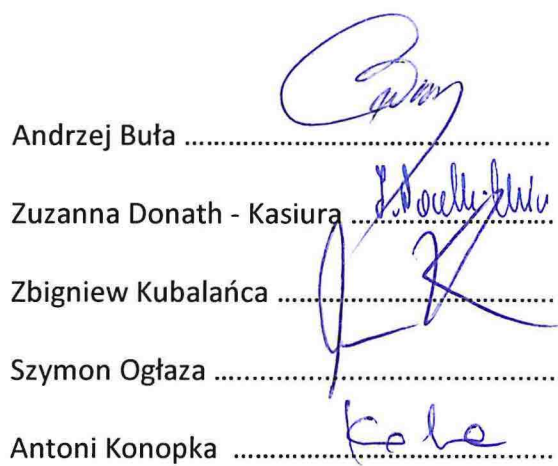 Andrzej Buła ..........................................
Zuzanna Donath - Kasiura ........................
Zbigniew Kubalańca ................................
Szymon Ogłaza ........................................
Antoni Konopka ......................................